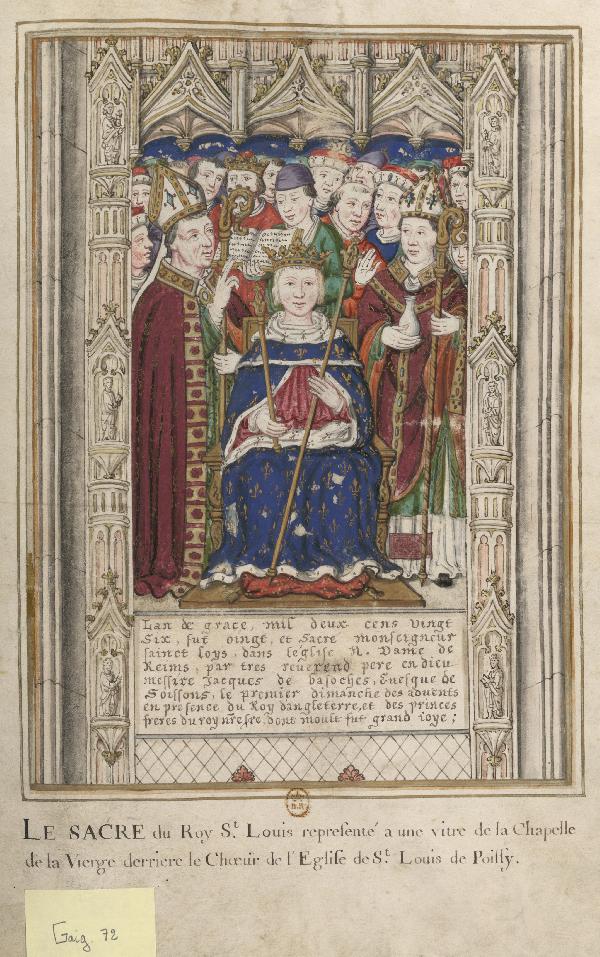 Lan de grace, mil deux cens vingt
Six, fut oingt, et Sacre monseigneur
sainct loys, dans leglise N. Dame de
Reims, par tres reverend pere en dieu
messire Jacques de basoches, Euesque de
Soissons, le premier dimanche des advents
en presence du Roy dangleterre, et des princes
freres du roy nresre, dont moult fut grand ioye ;
LE SACRE du Roy S.t Louis representé a une vitre de la Chapelle
de la Vierge derriere le Chœur de l'Eglise de S.t Louis de Poissy.
Gaig. 72